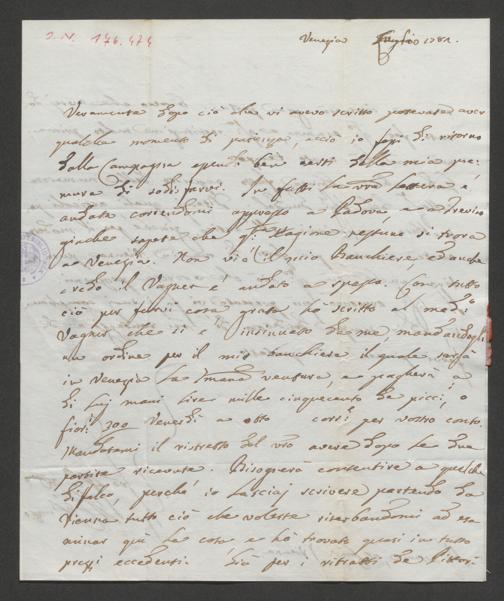 I. N. 176.474
Venezia luglio 1781.
Veramente dopo ciò che vi avevo scritto potevate aver
qualche momento di pazienza, acciò io fossi di ritorno
dalla Campagna essendo ben certi della mia pre-
mura di sodisfarvi. In fatti la vra lettera è
andata correndomi appresso a Padova, e a Treviso
giache sapete che in qta stagione nessuno si trova
a Venezia. Non vi è il mio Banchiere, ed anche
credo il Vagner è andato a spasso. Con tutto
ciò per farvi cosa grata hò scritto al med.
Vagner che si è insinuato da me, mandandogli
un ordine per il mio banchiere il quale sarà
in Venezia la settimana ventura, e pagherà a
di lui mani lire mille cinquecento de picci, o
fior: 300 Venerdi a otto corr. per vostro conto.
Mandatemi il ristretto del vro avere dopo le due
partite ricevute. Bisognerà consentire a qualche
difalco, perché io lasciai scrivere partendo da
Vienna tutto ciò che voleste riserbandomi ad esa
minar quì le cose e hò trovato quasi in tutto
prezzi eccedenti. Già per i ritratti de Pittori